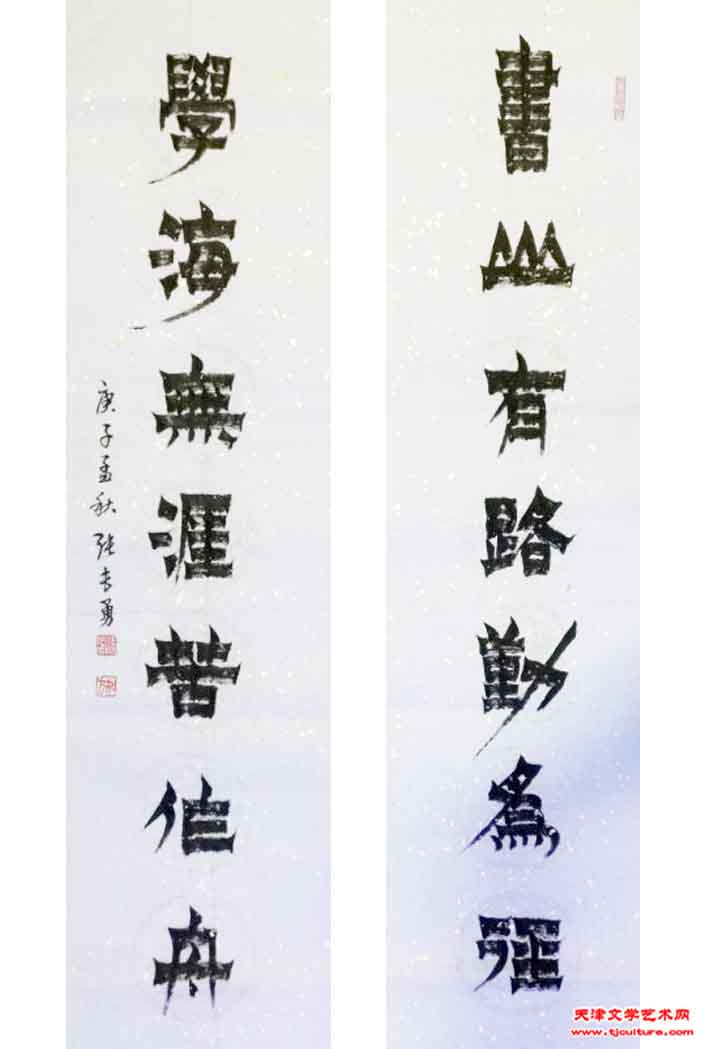 書山有路勤為徑
學海無涯苦作舟
庚子孟秋 張專勇
天津文学艺术网
www.tjculture.com